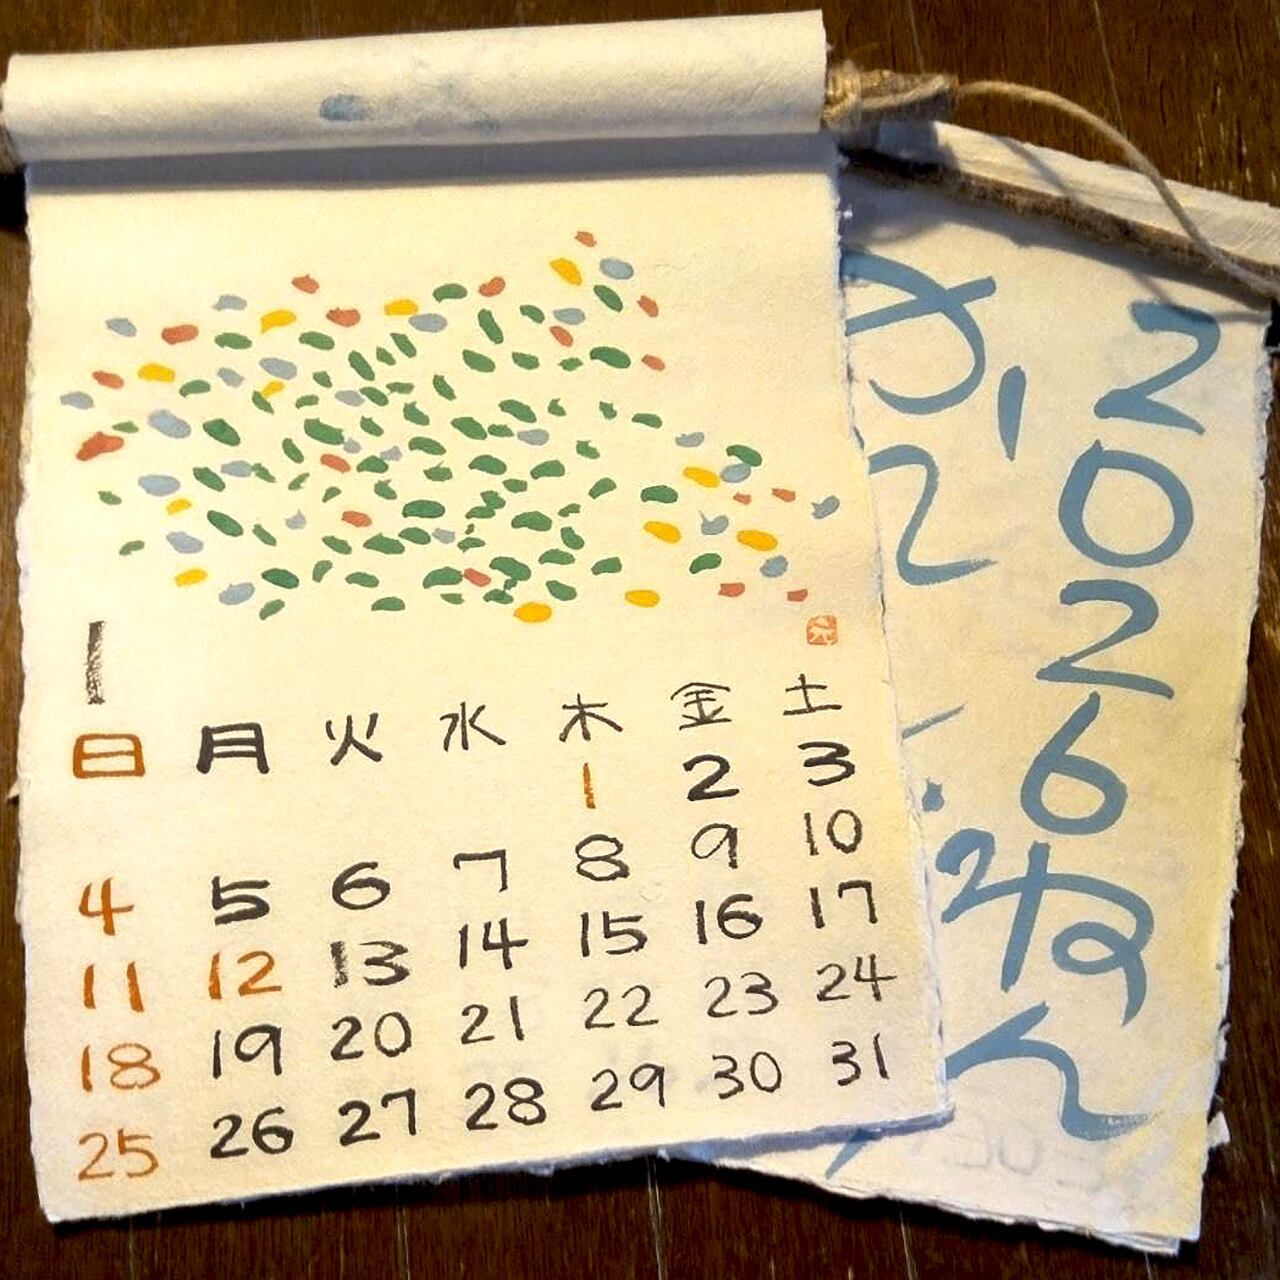 1
日 月 火 水 木 金 土
1 2 3
4 5 6 7 8 9 10
11 12 13 14 15 16 17
18 19 20 21 22 23 24
25 26 27 28 29 30 31
2026ねん